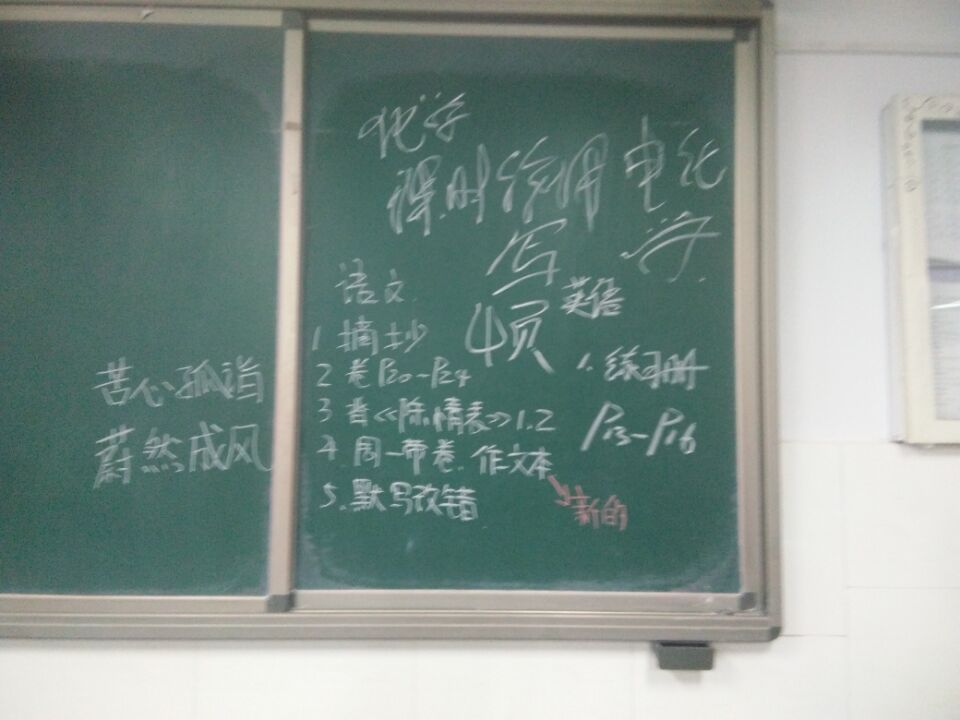 苦心孤诣
蔚然成风
化学
课时练册 电化学
写
4页
语文
1 摘抄
2 卷P20-P24
3 背《陈情表》1.2
4 周一带卷.作文本
新的
5.默写改错
英语
1.练习册
P13-P16